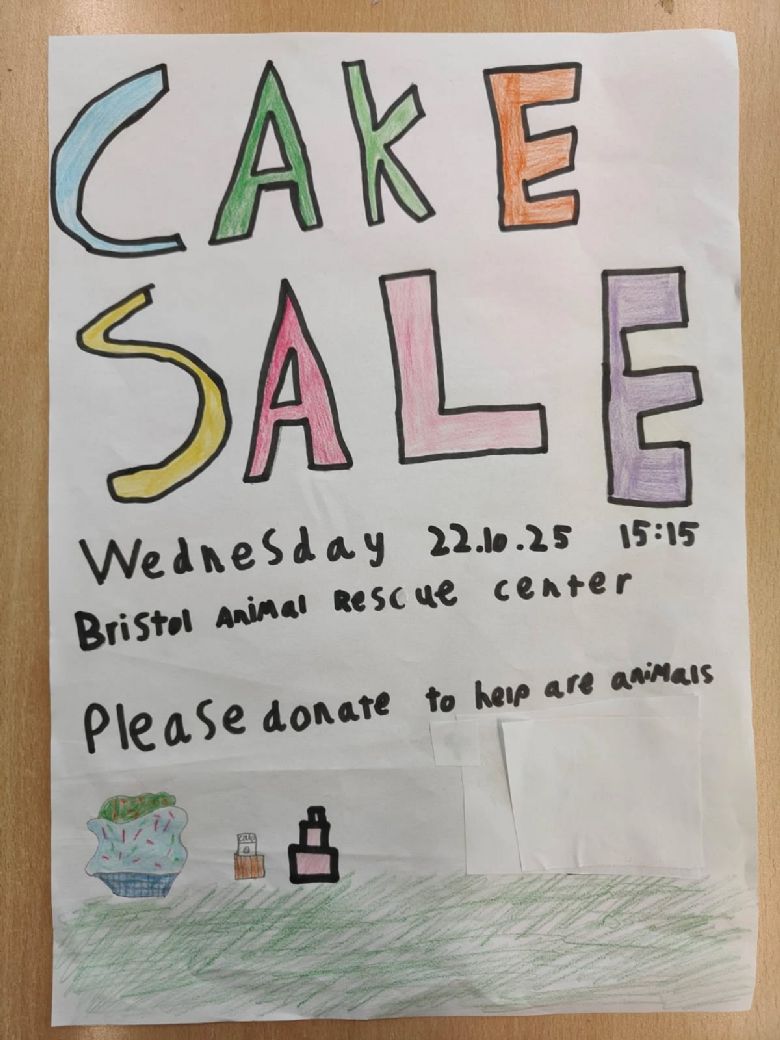 CAKE
SALE
Wednesday 22.10.25 15:15
Bristol Animal Rescue center
Please donate to help are animals